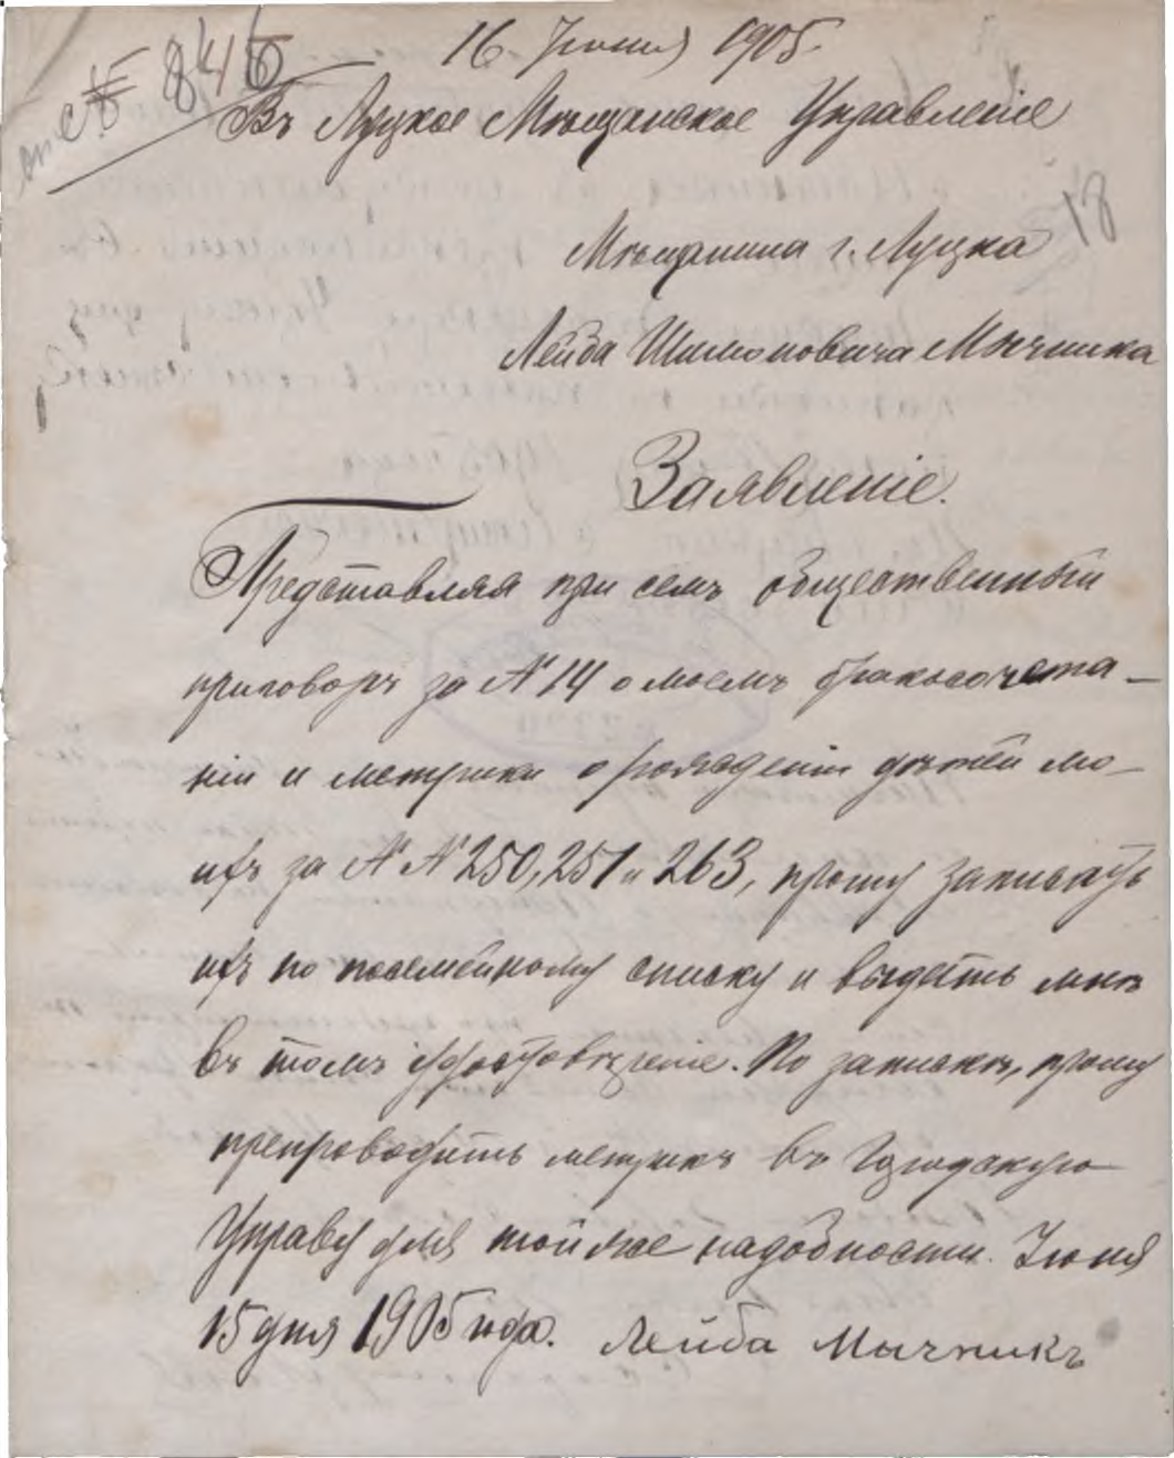 16 Іюня 1905.
846
Въ Луцкое Мѣщанское Управленіе
18
Мѣщанина г. Луцка
Лейба Шимоновича Мычника
Заявленіе.
Представляя при семъ общественный
приговоръ за № 14 о моемъ бракосочета-
ніи и метрики о рожденіи дѣтей мо-
ихъ за №№ 250, 251 и 263, прошу записать
ихъ по посемейному списку и выдать мнѣ
въ томъ удостовѣреніе. По запискѣ, прошу
препроводить метрикъ въ Городскую
Управу для той же надобности. Іюня
15 дня 1905 года. Лейба Мычникъ